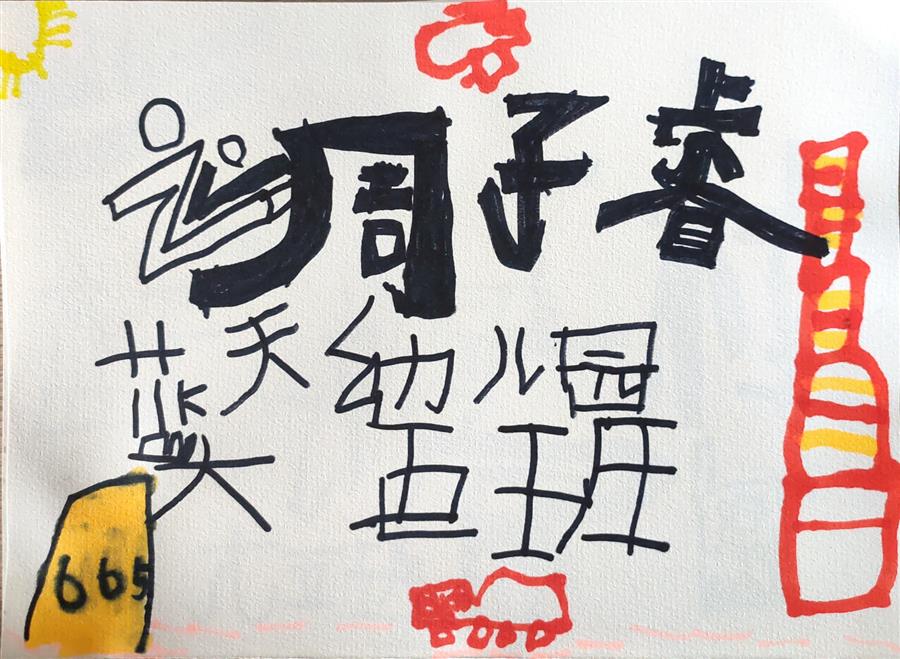 周子睿
蓝天幼儿园
大五班
665